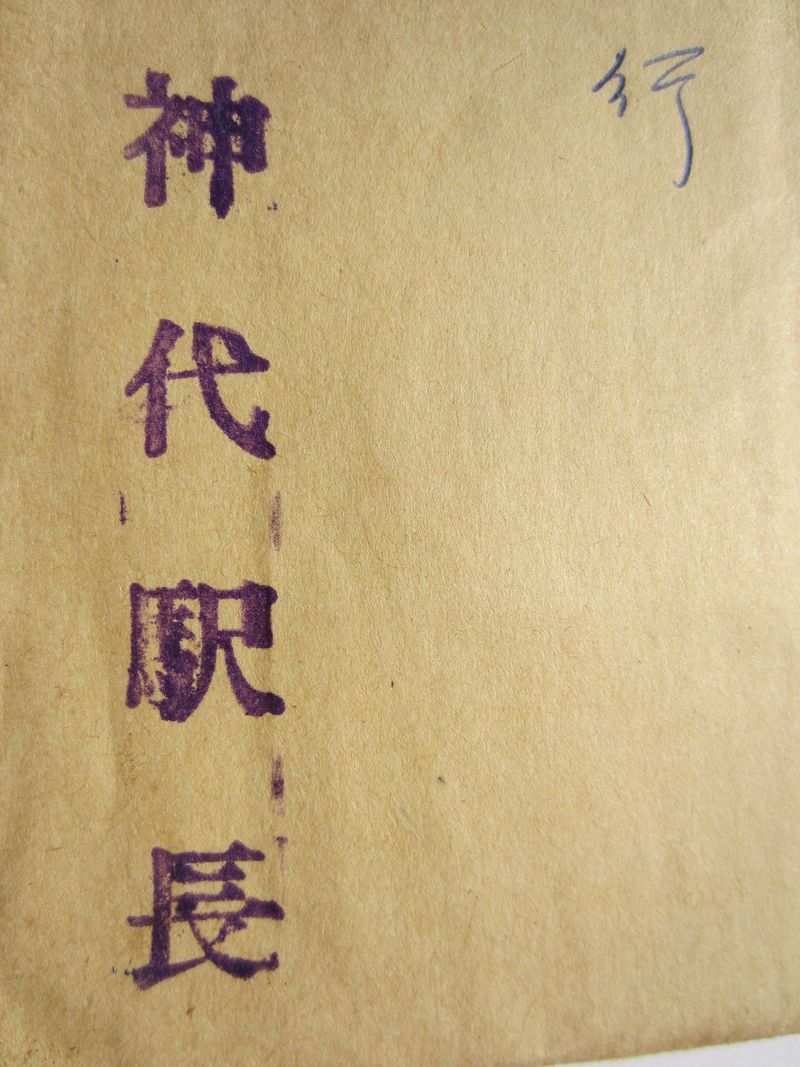 行
神代駅長